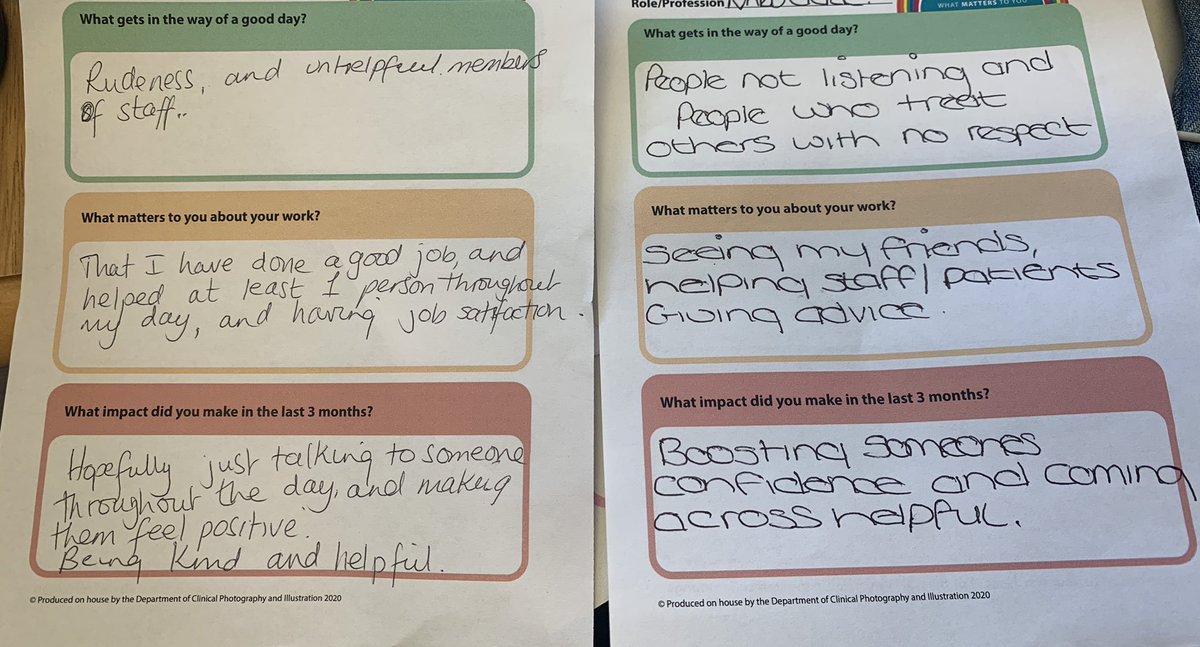 What gets in the way of a good day?
Rudeness, and unhelpful members
of staff..
What matters to you about your work?
That I have done a good job, and
helped at least 1 person throughout
my day, and having job satifaction.
What impact did you make in the last 3 months?
Hopefully just talking to someone
throughout the day, and making
them feel positive.
Being kind and helpful.
© Produced on house by the Department of Clinical Photography and Illustration 2020
Role/Profession
WHAT MATTERS TO YOU
What gets in the way of a good day?
People not listening and
People who treat
others with no respect
What matters to you about your work?
Seeing my friends,
helping staff/patients
Giving advice.
What impact did you make in the last 3 months?
Boosting someones
confidence and coming
across helpful.
© Produced on house by the Department of Clinical Photography and Illustration 2020